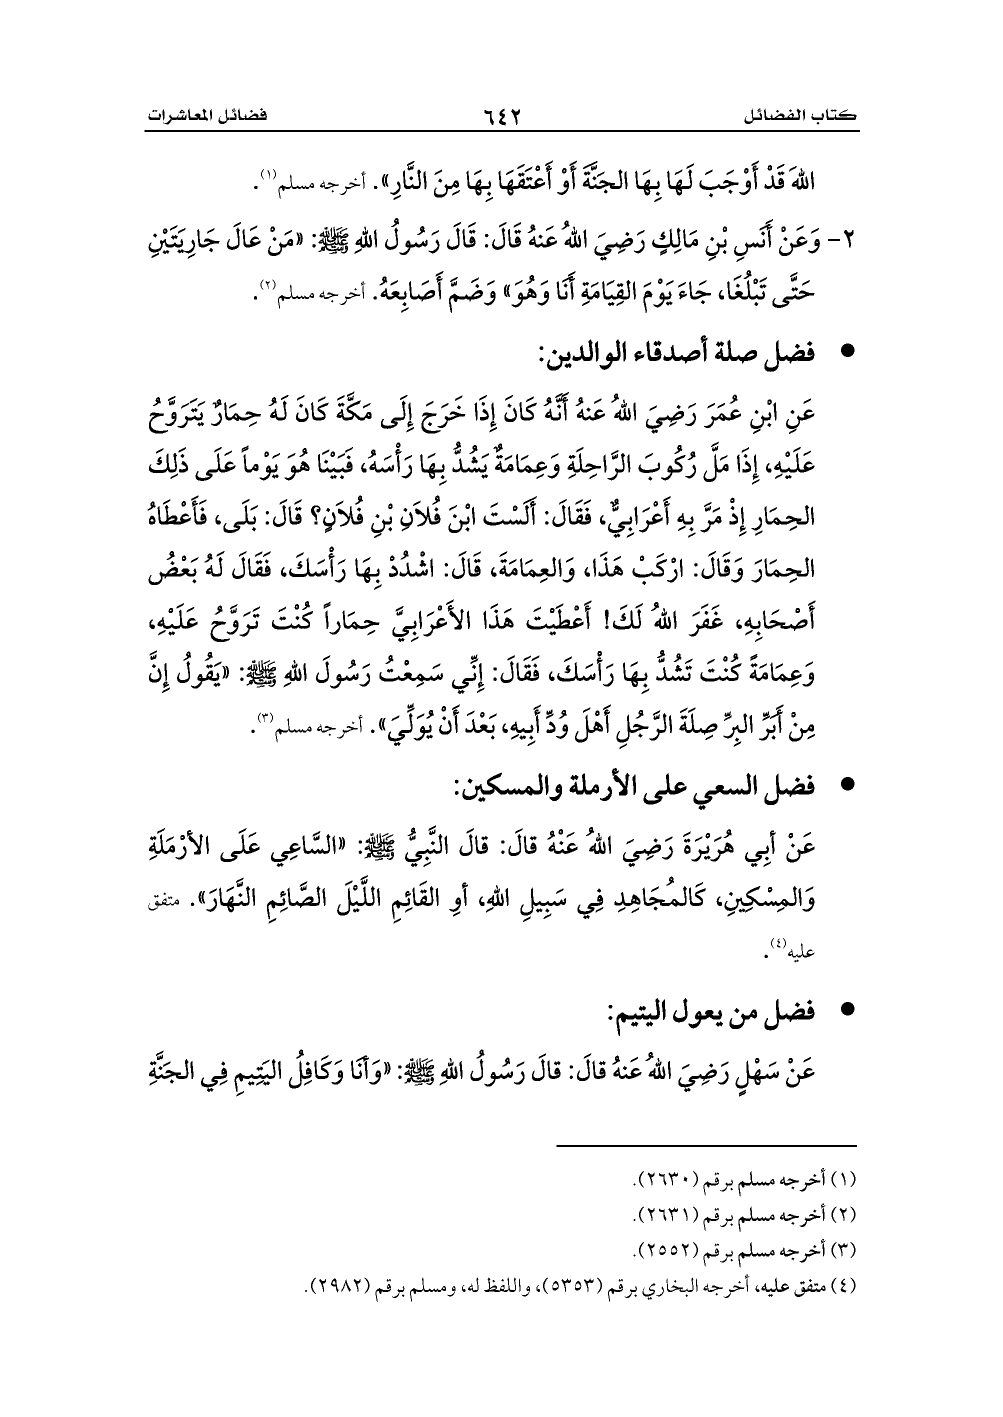 كتاب الفضائل ٦٤٢ فضائل المعاشرات
اللهَ قَدْ أَوْجَبَ لَهَا بِهَا الجَنَّةَ أَوْ أَعْتَقَهَا بِهَا مِنَ النَّارِ». أخرجه مسلم(١).
٢- وَعَنْ أَنَسِ بْنِ مَالِكٍ رَضِيَ اللهُ عَنهُ قَالَ: قَالَ رَسُولُ اللهِ ﷺ: «مَنْ عَالَ جَارِيَتَيْنِ
حَتَّى تَبْلُغَا، جَاءَ يَوْمَ القِيَامَةِ أَنَا وَهُوَ» وَضَمَّ أَصَابِعَهُ. أخرجه مسلم(٢).
● فضل صلة أصدقاء الوالدين:
عَنِ ابْنِ عُمَرَ رَضِيَ اللهُ عَنهُ أَنَّهُ كَانَ إِذَا خَرَجَ إِلَى مَكَّةَ كَانَ لَهُ حِمَارٌ يَتَرَوَّحُ
عَلَيْهِ، إِذَا مَلَّ رُكُوبَ الرَّاحِلَةِ وَعِمَامَةٌ يَشُدُّ بِهَا رَأْسَهُ، فَبَيْنَا هُوَ يَوْماً عَلَى ذَلِكَ
الحِمَارِ إِذْ مَرَّ بِهِ أَعْرَابِيٌّ، فَقَالَ: أَلَسْتَ ابْنَ فُلاَنِ بْنِ فُلاَنٍ؟ قَالَ: بَلَى، فَأَعْطَاهُ
الحِمَارَ وَقَالَ: ارْكَبْ هَذَا، وَالعِمَامَةَ، قَالَ: اشْدُدْ بِهَا رَأْسَكَ، فَقَالَ لَهُ بَعْضُ
أَصْحَابِهِ، غَفَرَ اللهُ لَكَ! أَعْطَيْتَ هَذَا الأَعْرَابِيَّ حِمَاراً كُنْتَ تَرَوَّحُ عَلَيْهِ،
وَعِمَامَةً كُنْتَ تَشُدُّ بِهَا رَأْسَكَ، فَقَالَ: إِنِّي سَمِعْتُ رَسُولَ اللهِ ﷺ: «يَقُولُ إِنَّ
مِنْ أَبَرِّ البِرِّ صِلَةَ الرَّجُلِ أَهْلَ وُدِّ أَبِيهِ، بَعْدَ أَنْ يُوَلِّيَ». أخرجه مسلم(٣).
● فضل السعي على الأرملة والمسكين:
عَنْ أبِي هُرَيْرَةَ رَضِيَ اللهُ عَنْهُ قالَ: قالَ النَّبِيُّ ﷺ: «السَّاعِي عَلَى الأرْمَلَةِ
وَالمِسْكِينِ، كَالمُجَاهِدِ فِي سَبِيلِ اللهِ، أوِ القَائِمِ اللَّيْلَ الصَّائِمِ النَّهَارَ». متفق
عليه(٤).
● فضل من يعول اليتيم:
عَنْ سَهْلٍ رَضِيَ اللهُ عَنهُ قالَ: قالَ رَسُولُ اللهِ ﷺ: «وَأنَا وَكَافِلُ اليَتِيمِ فِي الجَنَّةِ
(١) أخرجه مسلم برقم (٢٦٣٠).
(٢) أخرجه مسلم برقم (٢٦٣١).
(٣) أخرجه مسلم برقم (٢٥٥٢).
(٤) متفق عليه، أخرجه البخاري برقم (٥٣٥٣)، واللفظ له، ومسلم برقم (٢٩٨٢).